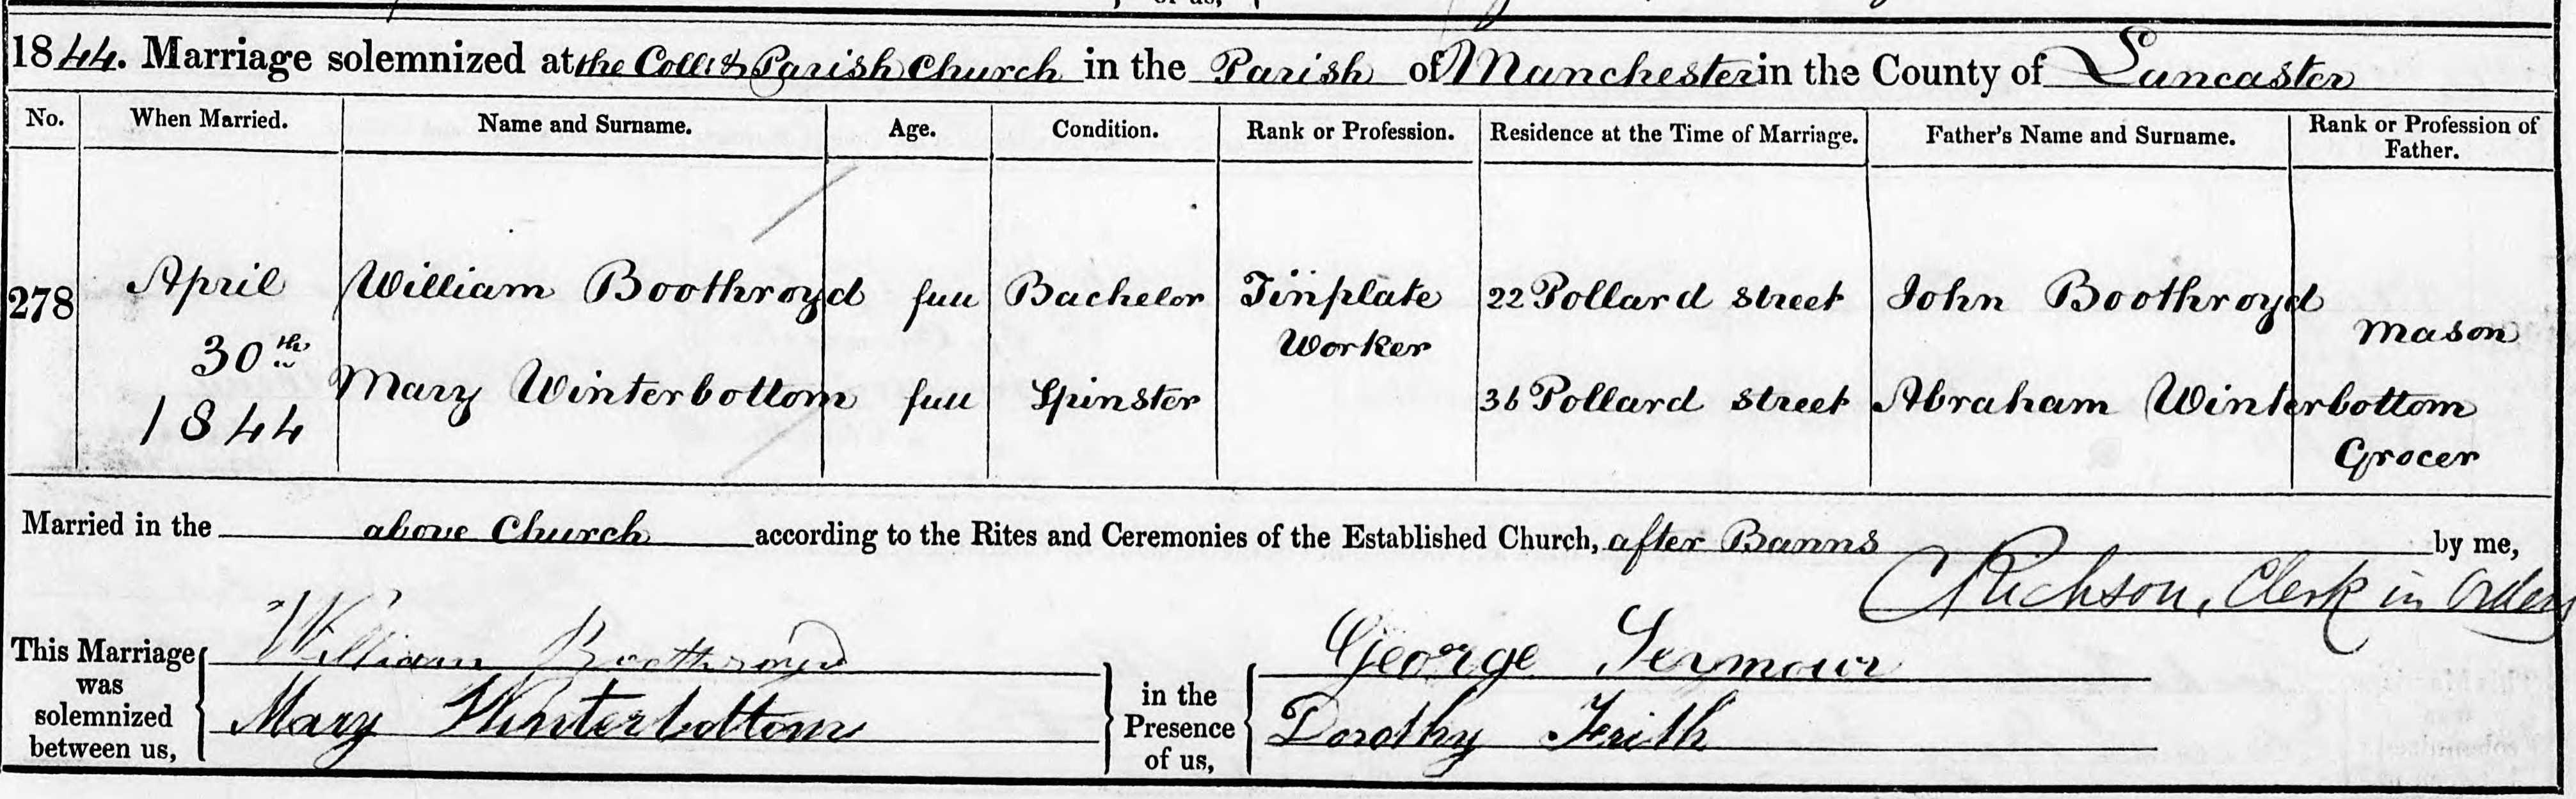 1844. Marriage solemnized at the Coll: & Parish Church in the Parish of Manchester in the County of Lancaster
No. When Married. Name and Surname. Age. Condition. Rank or Profession. Residence at the Time of Marriage. Father's Name and Surname. Rank or Profession of Father.
278 April 30th 1844 William Boothroyd full Bachelor Tinplate Worker 22 Pollard Street John Boothroyd Mason
Mary Winterbottom full Spinster 36 Pollard Street Abraham Winterbottom Grocer
Married in the above Church according to the Rites and Ceremonies of the Established Church, after Banns by me,
C Richson, Clerk in Orders
This Marriage was solemnized between us, William Boothroyd Mary Winterbottom in the Presence of us, George Seymour Dorothy Frith